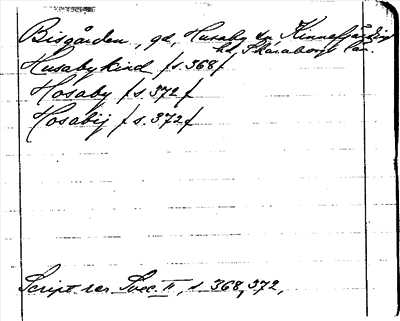 Bisgården, gd, Husaby sn Kinnefjärdings
hd, Skaraborgs län.
Husabykind f s. 368 f
Hosaby f s. 372 f
Hosabij f s. 372 f
Script. rer. Svec. II, s. 368, 372,